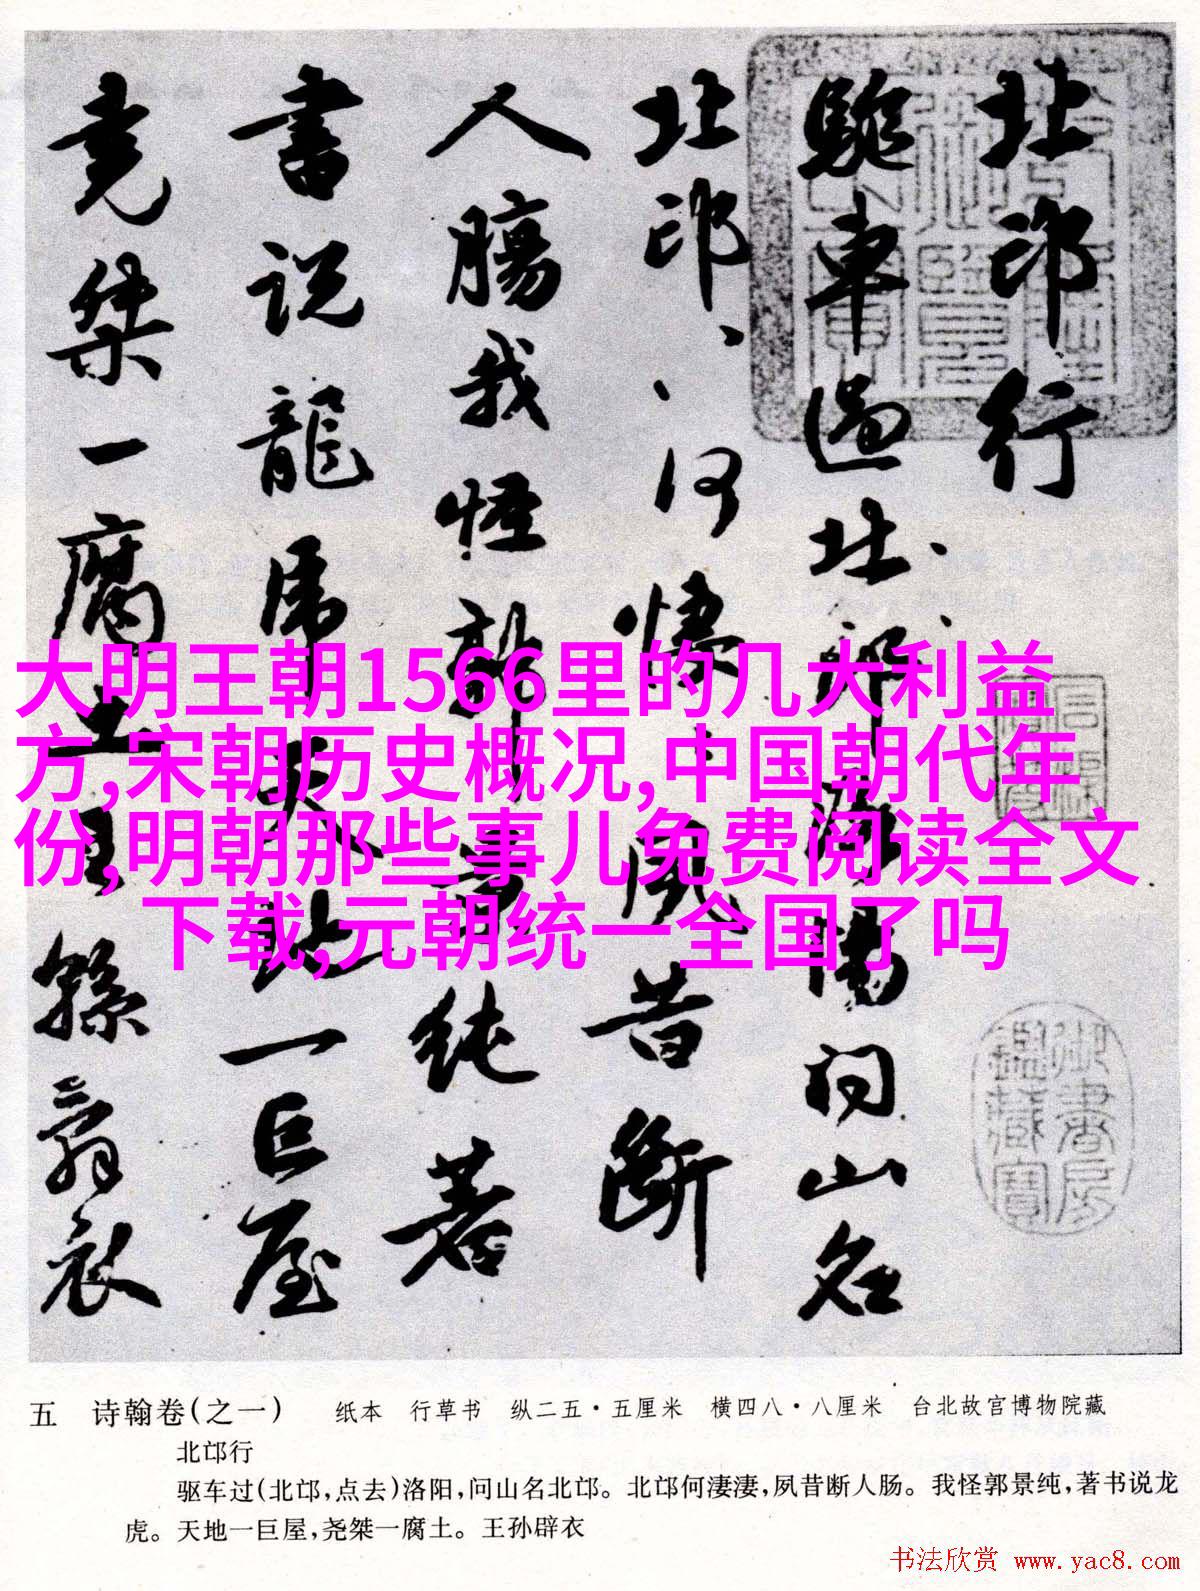 北邙行
驱車過北邙洛陽问山名
北邙、、何悽、風昔断
人腸我怪郭景纯著
書说龍虎天地一巨屋
尧桀一腐土王孫辟衣
御書房鑑藏寶
大明王朝1566里的几大利益
方,宋朝历史概况,中国朝代年
份,明朝那些事儿免费阅读全文
下载,元朝统一全国了吗
五 诗翰卷(之一) 纸本 行草书 纵二五·五厘米 横四八·八厘米 台北故宫博物院藏
北邙行
驱车过(北邙,点去)洛阳,问山名北邙。北邙何淒淒,夙昔断人肠。我怪郭景纯,著书说龙
虎。天地一巨屋,尧桀一腐土。王孙辟衣
书法欣赏 www.yac8.com